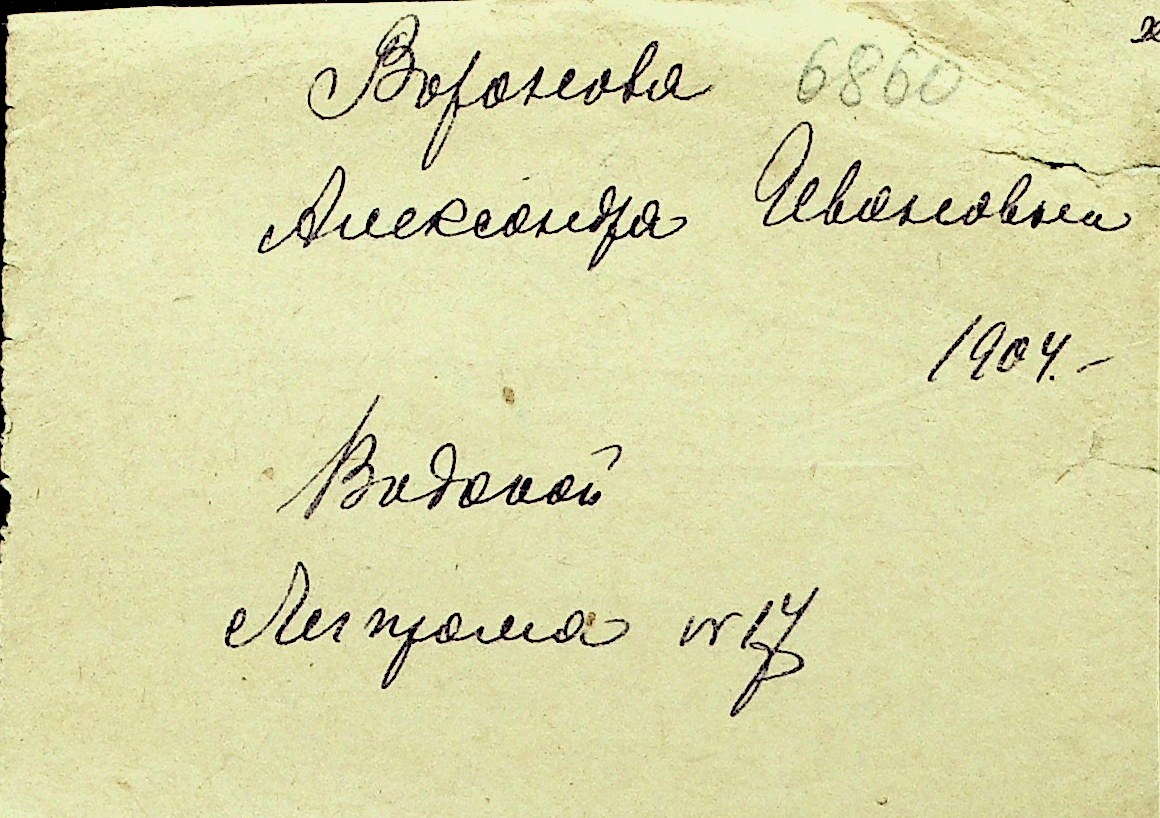 Воронова 6860
Александра Ивановна
1904.-
Водопой
Легпрома № 17